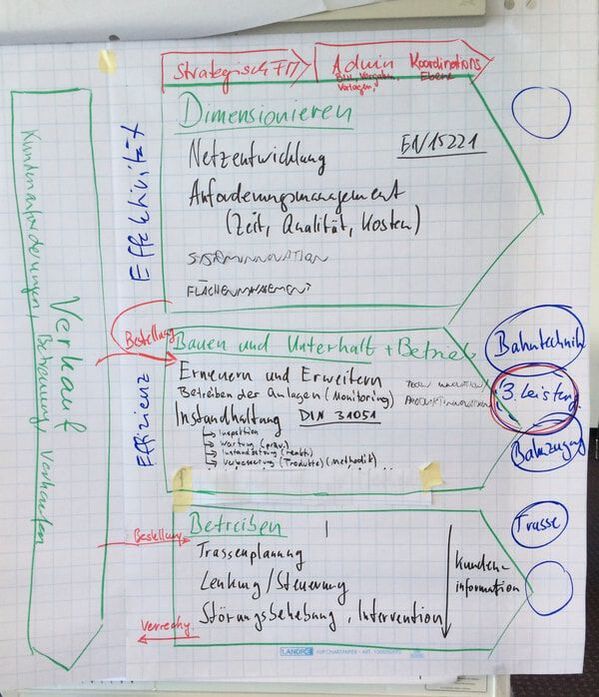 Strategisch FM
Admin Koordinations
Ebene
Dimensionieren
EN 15221
Netzentwicklung
Anforderungsmanagement
(Zeit, Qualität, Kosten)
SYSTEMINNOVATION
FLÄCHENMANAGEMENT
Effektivität
Verkauf
Kundenanforderungen, Betreuung, Verhalten
Bestellung
Bauen und Unterhalt + Betrieb
Erneuern und Erweitern
Betreiben der Anlagen (Monitoring)
PRODUKTINNOVATION
Instandhaltung DIN 31051
Inspektion
Wartung (präv.)
Instandsetzung (reakt.)
Verbesserung (Produkte) (Methodik)
Effizienz
Bahntechnik
3. Leistung
Bahnzugang
Bestellung
Betreiben
Trassenplanung
Lenkung/Steuerung
Störungsbehebung, Intervention
Kunden-
information
Trasse
Verrechg.
LANDRÉ